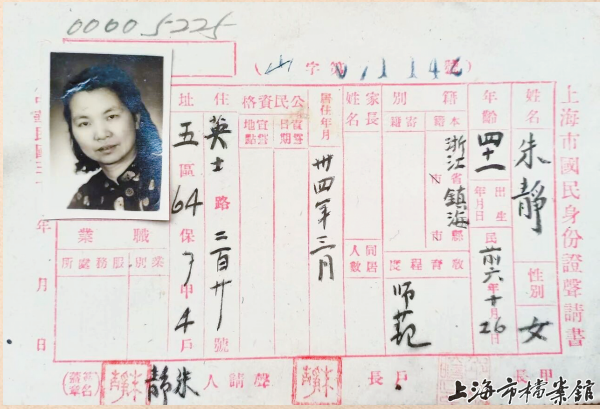 00005225
(山字第 01142 號)
上海市國民身份證聲請書
姓名 朱靜 性別 女
年齡 四十一 出生年月日 民前六年十月26日
籍別 本籍 浙江省鎮海縣市 寄籍
教育程度 師範
家長姓名 同居人數
居住年月 卅四年三月
公民資格 宣誓日期 宣誓地點
住址 英士路二百廿號
五區64保 甲4戶
職業 業別 服務處所
年 月 日
甲長
戶長
聲請人 朱靜 (簽名蓋章)
上海市檔案館